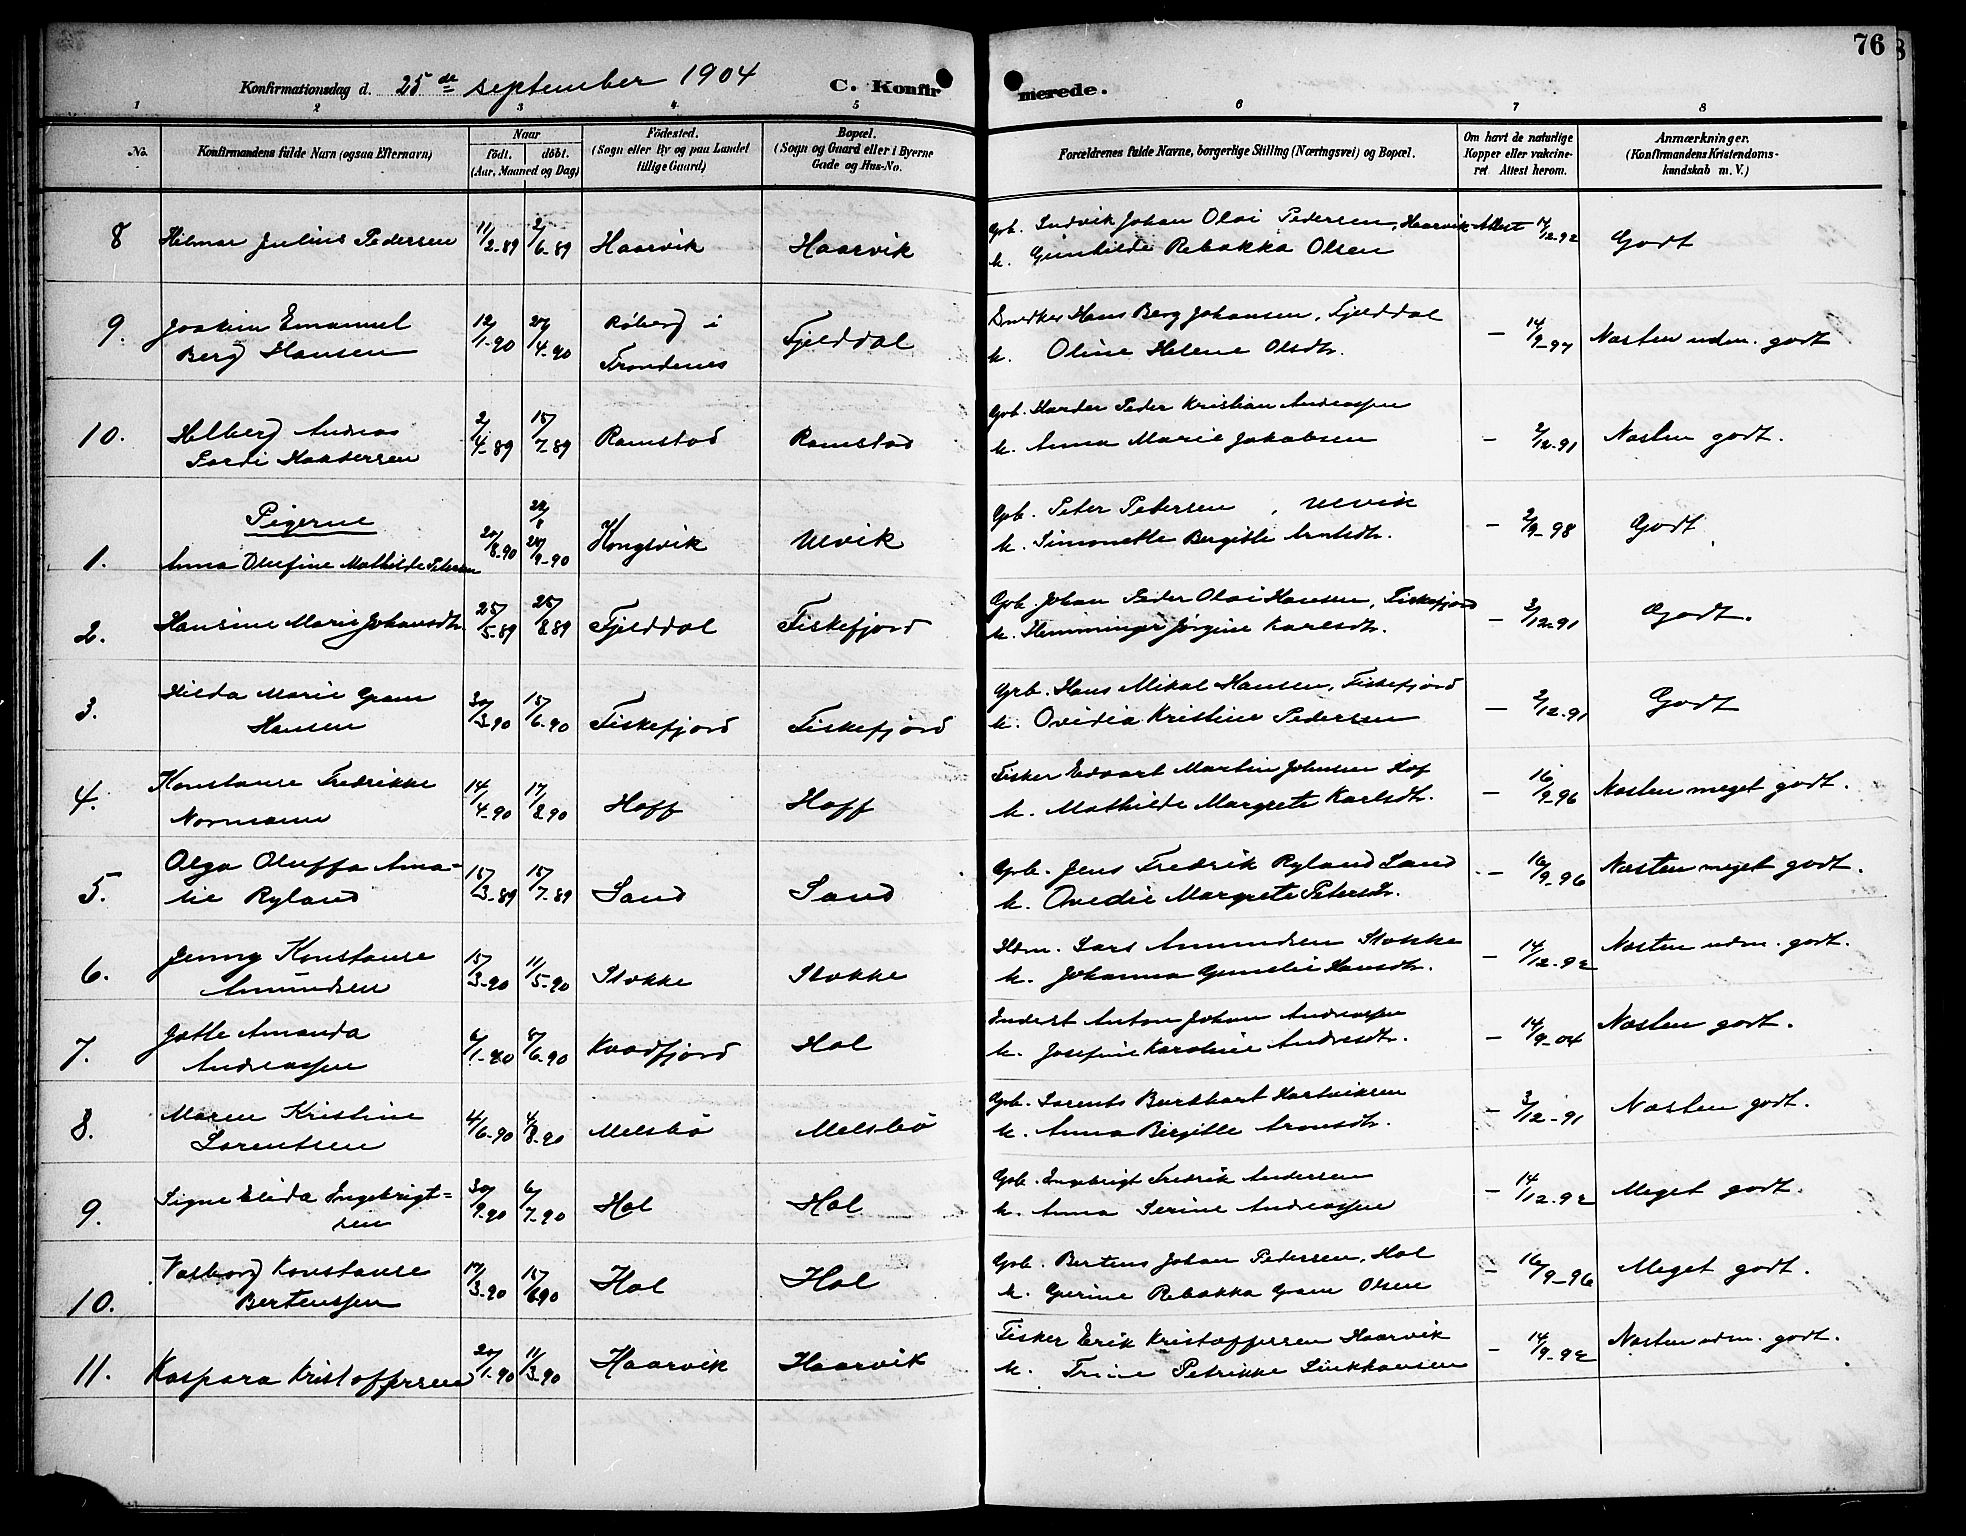 76
Konfirmationsdag d. 25de september 1904 C. Konfirmerede.
1 2 3 4 5 6 7 8
No. Konfirmandens fulde Navn (ogsaa Efternavn) Naar födt. döbt. (Aar, Maaned og Dag) Födested. (Sogn eller By og paa Landet tillige Gaard) Bopæl. (Sogn og Gaard eller i Byerne Gade og Hus-No. Forældrenes fulde Navne, borgerlige Stilling (Næringsvei) og Bopæl. Om havt de naturlige Kopper eller vakcineret Attest herom. Anmærkninger. (Konfirmandens Kristendomskundskab m. V.)
8 Hilmar Julius Pedersen 11/2-89 2/6-89 Haarvik Haarvik Gpb. Ludvik Johan Olai Pedersen, Haarvik Attest 14/12-92 Godt
k. Gunhilde Rebakka Olsen
9. Joakim Emanuel Berg Hansen 12/1-90 27/4-90 Røberg i Trondenes Fjelddal Snedker Hans Berg Johansen, Fjelddal - 14/9-97 Næsten udm. godt
k. Oline Helene Olsdtr.
10. Helberg Andreas 2/4-89 15/7-89 Ramstad Ramstad Gpb. Peder Kristian Andreassen - 2/12-91 Næsten godt.
k. Anna Marie Jakobsen
Pigerne
1. Anna Olufine Mathilde Petersen 20/8-90 28/9-90 Kongsvik Ulvik Gpb. Peter Petersen, Ulvik - 2/9-98 Godt
k. Simonette Bergitte Arntsdtr.
2. Hansine Marie Johansdtr. 25/5-89 25/8-89 Fjelddal Fiskefjord Gpb. Johan Peder Olai Hansen, Fiskefjord - 2/12-91 Godt.
k. Hemminger Jørgine Karlsdtr.
3. Hilda Marie Gram Hansen 30/3-90 15/6-90 Fiskefjord Fiskefjord Gpb. Hans Mikal Hansen, Fiskefjord - 2/12-91 Godt
k. Ovidia Kristine Pedersen
4. Konstanse Fredrikke Normann 14/4-90 17/8-90 Hoff Hoff Fisker Edvart Martin Johnsen Hof - 16/9-96 Næsten meget godt.
k. Mathilde Margrete Karlsdtr.
5. Olga Oluffa Amalie Ryland 15/3-89 15/7-89 Sand Sand Gpb. Jens Fredrik Ryland Sand - 16/9-96 Næsten meget godt.
k. Ovedie Margrete Petersdtr.
6. Jenny Konstanse Amundsen 15/3-90 11/5-90 Stokke Stokke Hdm. Lars Amundsen Stokke - 14/12-92 Næsten udm. godt.
k. Johanna Gunelie Hansdtr.
7. Jette Amanda Andreassen 6/1-90 8/6-90 Kvadfjord Hol Inderst Anton Johan Andreassen - 14/9-04 Næsten godt.
k. Josefine Karoline Andresdtr.
8. Maren Kristine Lorentsen 4/6-90 4/8-90 Melsbö Melsbö Gpb. Lorents Burkhart Hartviksen - 3/12-91 Næsten godt.
k. Anna Birgitte Aronsdtr.
9. Signe Elida Ingebrigtsen 30/9-90 6/7-90 Hol Hol Gpb. Ingebrigt Fredrik Andersen - 14/12-92 Meget godt.
k. Anna Serine Andreassen
10. Valborg Konstanse Bertenssen 17/3-90 15/6-90 Hol Hol Gpb. Bertens Johan Pedersen, Hol - 16/9-96 Meget godt.
k. Gjerine Rebakka Gram Olsen
11. Kaspara Kristoffersen 20/1-90 11/3-90 Haarvik Haarvik Fisker Erik Kristoffersen Haarvik - 14/9-92 Næsten udm. godt.
k. Trine Petrikke Linkhausen